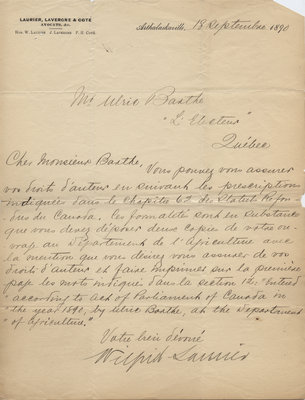 LAURIER, LAVERGNE & COTÉ
AVOCATS, &c.
HON. W. LAURIER J. LAVERGNE P. H. COTÉ
Arthabaskaville, 18 Septembre 1890
Mr Ulric Barthe
"L'Electeur"
Québec
Cher Monsieur Barthe,
Vous pouvez vous assurer
vos droits d'auteur en suivant les prescriptions
indiquées dans le Chapitre 62 des Statuts Refon-
dus du Canada. Les formalités sont en substance
que vous devez déposer deux copies de votre ou-
vrage au Département de l'Agriculture avec
la mention que vous désirez vous assurer de vos
droits d'auteur et faire imprimer sur la première
page les mots indiqués dans la section 12: "Entered
"according to Act of Parliament of Canada in
"the year 1890, by Ulric Barthe, at the Department
"of Agriculture."
Votre bien dévoué
Wilfrid Laurier